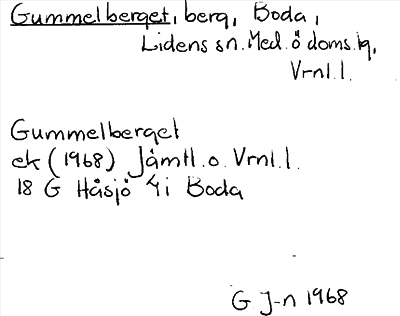 Gummelberget, berg, Boda,
Lidens sn. Med. ö doms. lq,
Vrnl. l.
Gummelberget
ek (1968) Jämtl. o. Vrnl. l.
18 G Håsjö 4 i Boda
G J-n 1968